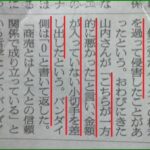 を過って侵害したことがあ
ったという。おわびにきた
山内さんが「こちらが一方
的に悪かった」と言い、金額
が入っていない小切手を差
し出したという。バンダイ
側は「0」と書いて返した。
「商売とは人と人との信頼
関係で成り立っていると